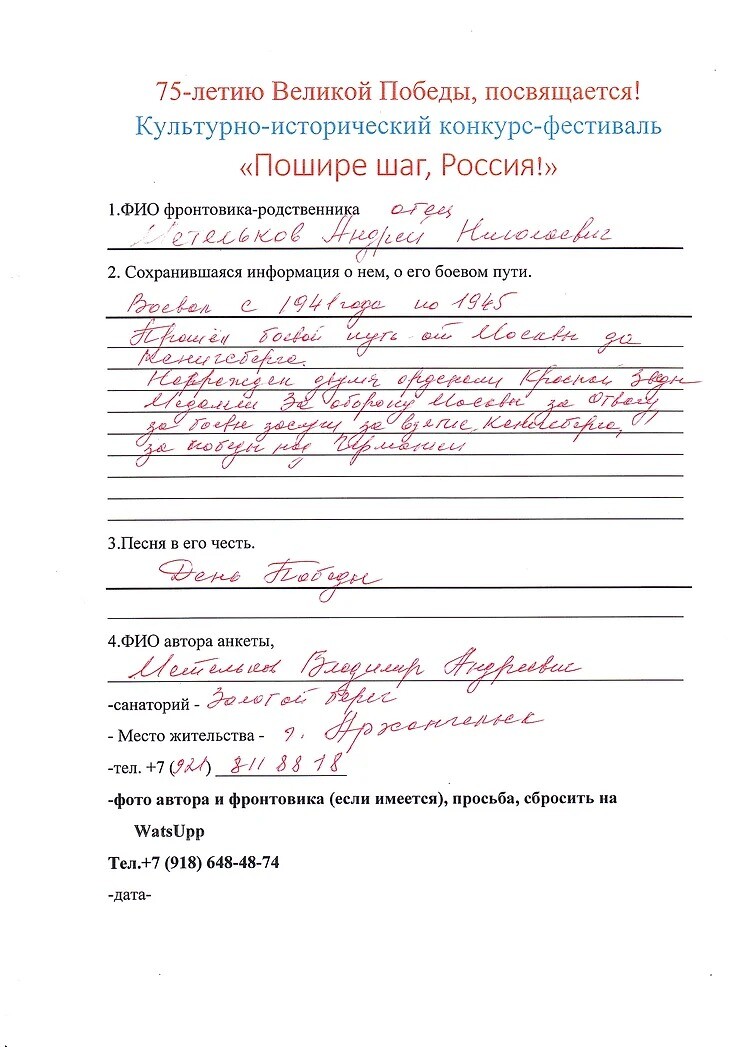 75-летию Великой Победы, посвящается!
Культурно-исторический конкурс-фестиваль
«Пошире шаг, Россия!»
1.ФИО фронтовика-родственника отец
Метельков Андрей Николаевич
2. Сохранившаяся информация о нем, о его боевом пути.
Воевал с 1941 года по 1945
Прошёл боевой путь от Москвы до
Кенигсберга.
Награжден двумя орденами Красной Звезды
Медалми За оборону Москвы за Отвагу
за боевы заслуги за взятие Кенигсберга,
за победы над Германией
3.Песня в его честь.
День Победы
4.ФИО автора анкеты,
Метельков Владимир Андреевич
-санаторий - Золотой берег
- Место жительства - г. Архангельск
-тел. +7 (921) 811 88 18
-фото автора и фронтовика (если имеется), просьба, сбросить на
WatsUpp
Тел.+7 (918) 648-48-74
-дата-